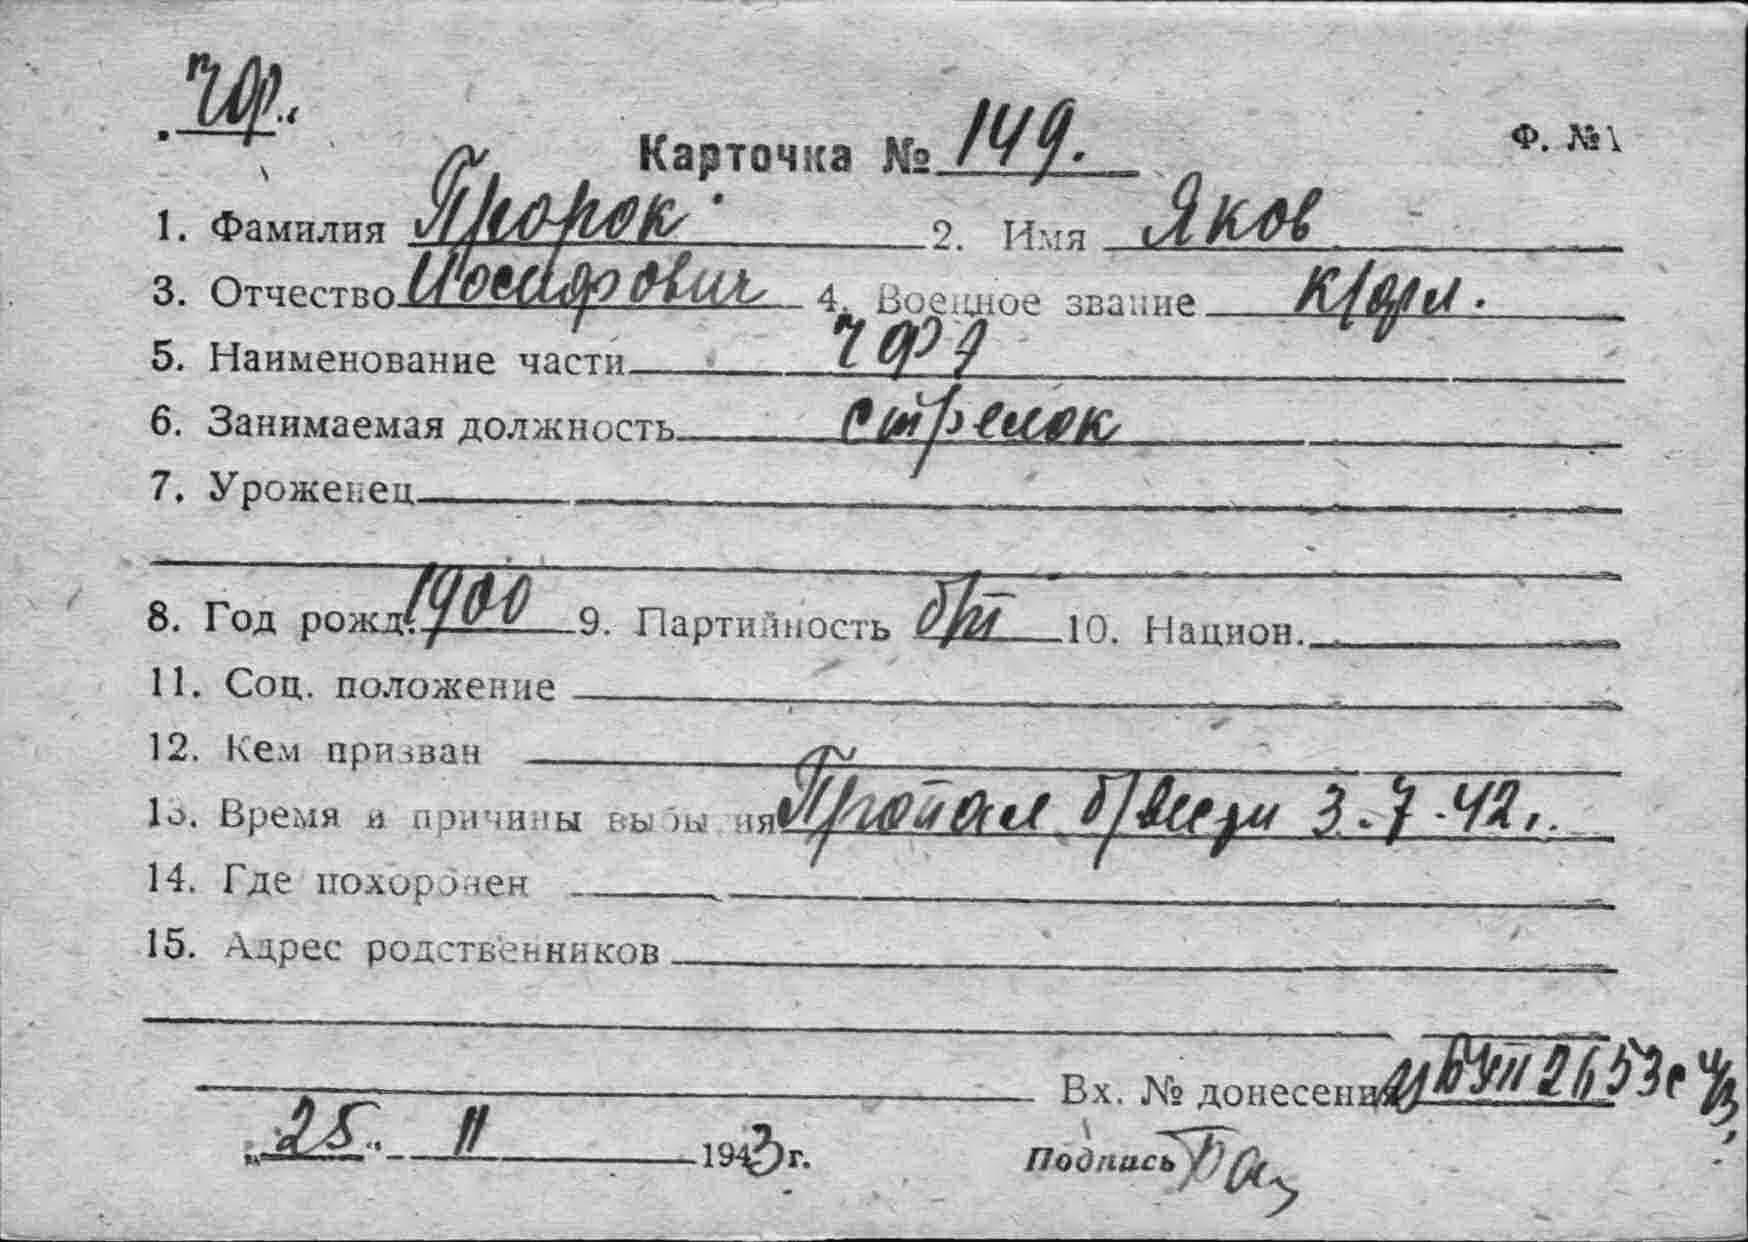 ЧФ.
Карточка № 149. Ф. №1
1. Фамилия Пророк 2. Имя Яков
3. Отчество Иосифович 4. Военное звание к/фл.
5. Наименование части ЧФ
6. Занимаемая должность стрелок
7. Уроженец
8. Год рожд. 1900 9. Партийность б/п 10. Национ.
11. Соц. положение
12. Кем призван
13. Время и причины выбытия Пропал б/вести 3.7.42г.
14. Где похоронен
15. Адрес родственников
Вх. № донесения 2653с
"25" 11 1943 г. Подпись